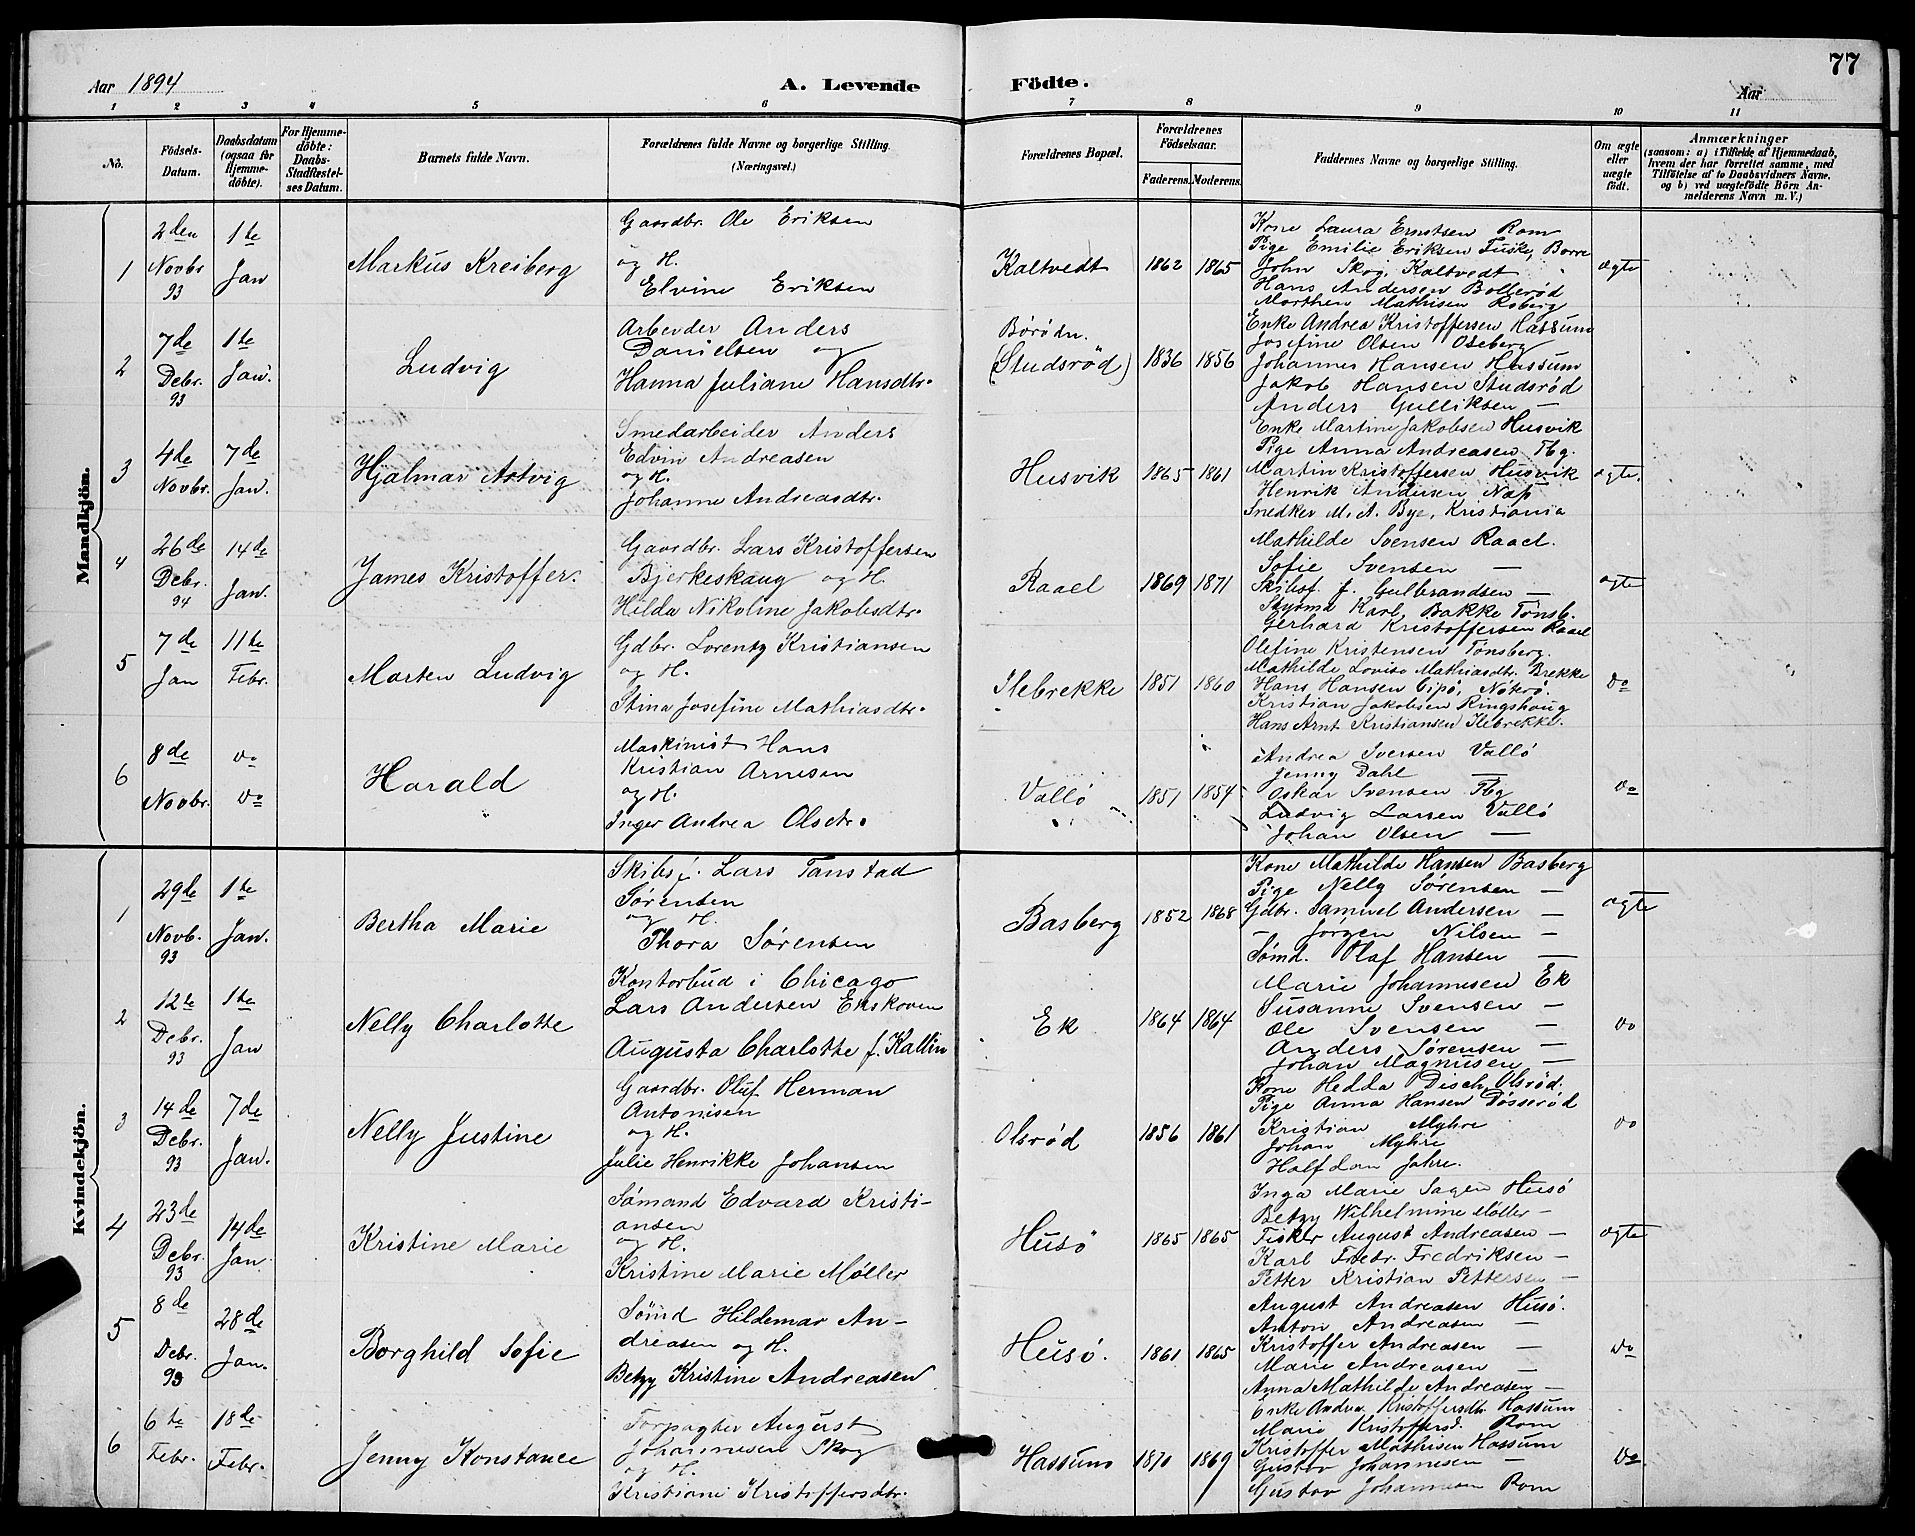 77
Aar 1894
A. Levende Födte.
Aar
1 2 3 4 5 6 7 8 9 10 11
No.
Födsels-Datum.
Daabsdatum (ogsaa for Hjemme-döbte).
For Hjemme-döbte: Daabs-Stadfæstel-ses Datum.
Barnets fulde Navn.
Forældrenes fulde Navne og borgerlige Stilling. (Næringsvei.)
Forældrenes Bopæl.
Forældrenes Födselsaar.
Faderens. Moderens.
Faddernes Navne og borgerlige Stilling.
Om ægte eller uægte födt.
Anmærkninger
(saasom: a) i Tilfælde af Hjemmedaab,
hvem der har forrettet samme, med
Tilföielse af to Daabsvidners Navne.
og b) ved uægtefödte Börn An-
melderens Navn m. V.)
Mandkjön.
1
2den Novbr 93
1te Jan
Markus Kreiberg
Gaardbr. Ole Eriksen
og H.
Elvine Eriksen
Kaltvedt
1862 1865
Kone Laura Ernstsen Rom
Pige Emilie Eriksen Fuske, Borre
John Skog, Kaltvedt
Hans Andersen Bollerød
Morthen Mathisen Roberg
ægte
2
7de Debr. 93
1te Jan.
Ludvig
Arbeider Anders
Danielsen og
Hanna Juliane Hansdtr.
Børødn.
(Studsrød)
1836 1856
Enke Andrea Kristoffersen Hassum
Josefine Olsen Oseberg
Johannes Hansen Hassum
Jakob Hansen Studsrød
Anders Gulliksen —
3
4de Novbr.
7de Jan.
Hjalmar Astvig
Smedarbeider Anders
Edvin Andreasen
og H.
Johanne Andreasdtr.
Husvik
1865 1861
Enke Martine Jakobsen Husvik
Pige Anna Andreasen Tbg.
Martin Kristoffersen Husvik
Henrik Andersen Næs
Snedker M. A. Bye, Kristiania
ægte.
4
26de Debr. 94
14de Jan.
James Kristoffer.
Gaardbr. Lars Kristoffersen
Bjerkeskaug og H.
Hilda Nikoline Jakobsdtr.
Raael
1869 1871
Mathilde Svensen Raael.
Sofie Svensen —
Skibsf. J. Gulbrandsen —
Styrmd Karl Bakke Tönsb.
Gerhard Kristoffersen Raael
ægte
5
7de Jan
11te Febr.
Morten Ludvig
Gdbr. Lorentz Kristiansen
og H.
Stina Josefine Mathiasdtr.
Ilebrekke
1851 1860
Olefine Kristensen Tønsberg.
Mathilde Lovise Mathiasdtr. Brekke
Hans Hansen Eipø, Nøterø.
Kristian Jakobsen Ringshaug
Hans Arnt Kristiansen Ilebrekke.
do
6
8de Novbr.
do do
Harald
Maskinist Hans
Kristian Arnesen
og H.
Inger Andrea Olsdtr.
Vallö
1851 1854
Andrea Iversen Vallö
Jenny Dahl —
Oskar Svensen Tbg
Ludvig Larsen Vallö
Johan Olsen —
do
Kvindekjön.
1
29de Novb. 93
1te Jan.
Bertha Marie
Skibsf. Lars Tanstad
Sørensen
og H.
Thora Sørensen
Basberg
1852 1868
Kone Mathilde Hansen Basberg
Pige Nelly Sørensen —
Gdbr. Samuel Andersen —
— Jørgen Nilsen —
Sømd. Olaf Hansen —
ægte
2
12te Debr. 93
1te Jan
Nelly Charlotte
Kontorbud i Chicago
Lars Andersen Ekskoven
Augusta Charlotte f. Kallin
Ek
1864 1864
Marie Johannesen Ek
Susanne Svensen —
Ole Svensen —
Anders Sørensen —
Johan Magnusen —
do
3
14de Debr. 93
7de Jan.
Nelly Justine
Gaardbr. Oluf Herman
Antonisen
og H.
Julie Henrikke Johansen
Olsrød
1856 1861
Kone Hedda Disch, Olsrød.
Pige Anna Hansen Døsserød
Kristian Myhre
Johan Myhre
Halfdan Jahre.
do
4
23de Debr. 93
14de Jan.
Kristine Marie
Sømand Edvard Kristi-
ansen
og H.
Kristine Marie Møller
Husö
1865 1865
Inga Marie Sagen Husö
Betzy Wilhelmine Møller —
Fisker August Andreasen —
Karl Fredr. Fredriksen —
Petter Kristian Pettersen —
ægte
5
8de Debr. 93
28de Jan.
Borghild Sofie
Sømd Hildemar An-
dreasen og H.
Betzy Kristine Andreasen
Husö.
1861 1865
August Andreasen Husö.
Anton Andreasen —
Kristoffer Andreasen —
Marie Andreasen —
Anna Mathilde Andreasen —
do
6
6te Febr.
18de Febr.
Jenny Konstance
Forpagter August
Johannesen Skog
og H.
Kristiane Kristoffersdtr.
Hassum
1870 1869
Enke Andrea Kristoffersdtr. Hassum
Marie Kristoffersd. Rom
Kristoffer Mathisen Hassum
Gustav Johannesen —
Gustav Johannesen Rom
do